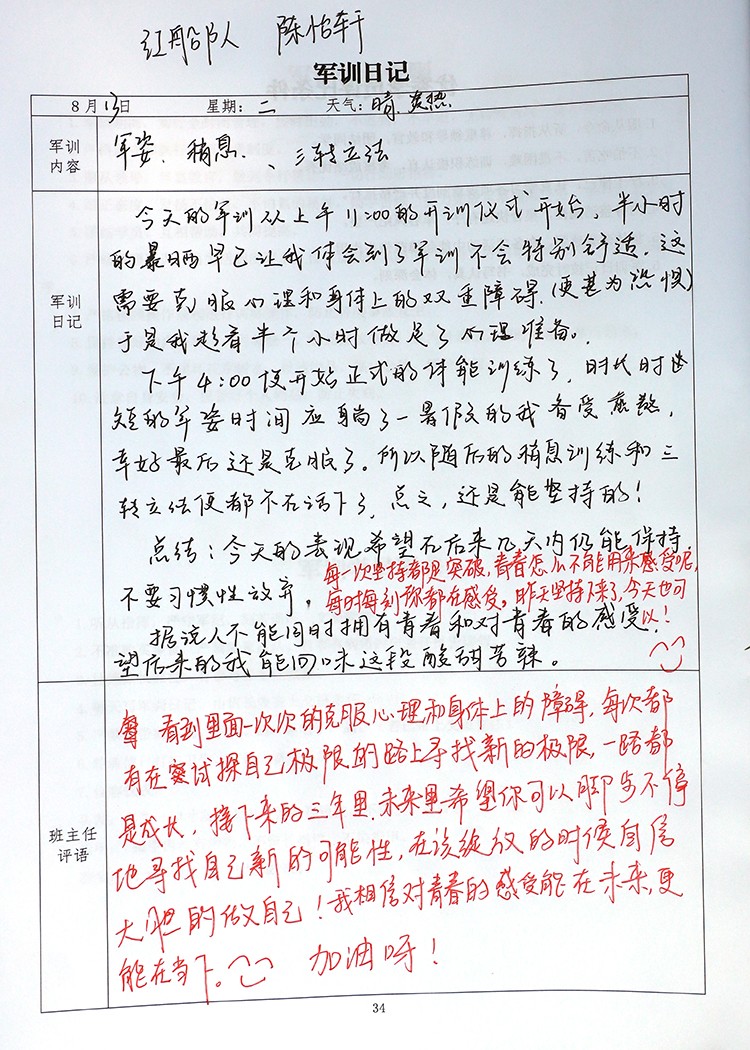 红船部队 陈怡轩
军训日记
8月13日 星期:二 天气:晴.炎热
军训内容
军姿、稍息、三转立法
军训日记
今天的军训从上午11:00的开训仪式开始,半小时
的暴晒早已让我体会到了军训不会特别舒适.这
需要克服心理和身体上的双重障碍.(便甚为恐惧)
于是我趁着半个小时做足了心理准备。
下午4:00便开始正式的体能训练了,时长时
短的军姿时间应躺了一暑假的我备受煎熬,
幸好最后还是克服了。所以随后的稍息训练和三
转立法便都不在话下了,总之,还是能坚持的!
总结:今天的表现希望在后来几天内仍能保持,
不要习惯性放弃,
每一次坚持都是突破,青春怎么不能用来感受呢,
每时每刻你都在感受。昨天坚持下来了,今天也可
以!
据说人不能同时拥有青春和对青春的感受.
望后来的我能回味这段酸甜苦辣。
班主任评语
看到里面一次次的克服心理和身体上的障碍,每次都
有在尝试探自己极限的路上寻找新的极限,一路都
是成长,接下来的三年里.未来里希望你可以脚步不停
地寻找自己新的可能性,在该绽放的时候自信
大胆的做自己!我相信对青春的感受能在未来,更
能在当下。 加油呀!
34